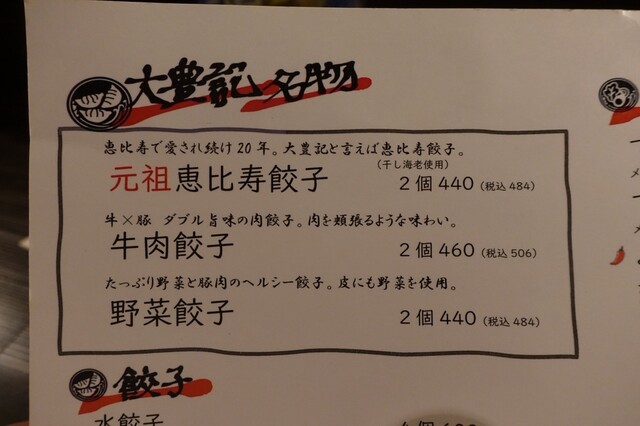 大豊記 名物
恵比寿で愛され続け20年。大豊記と言えば恵比寿餃子。
(干し海老使用)
元祖恵比寿餃子 2個 440 (税込 484)
牛×豚 ダブル旨味の肉餃子。肉を頬張るような味わい。
牛肉餃子 2個 460 (税込 506)
たっぷり野菜と豚肉のヘルシー餃子。皮にも野菜を使用。
野菜餃子 2個 440 (税込 484)
餃子
水餃子